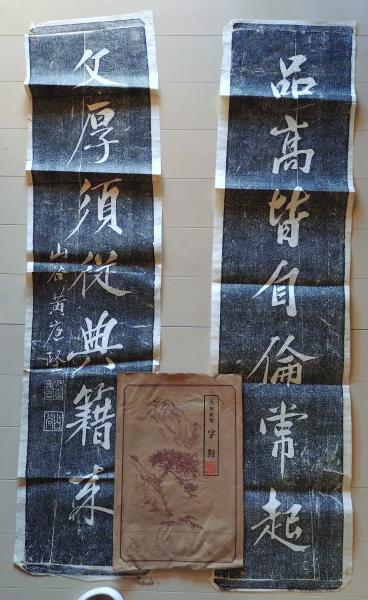 品高皆自倫常起
文厚須從典籍来
山谷黄庭堅
字對